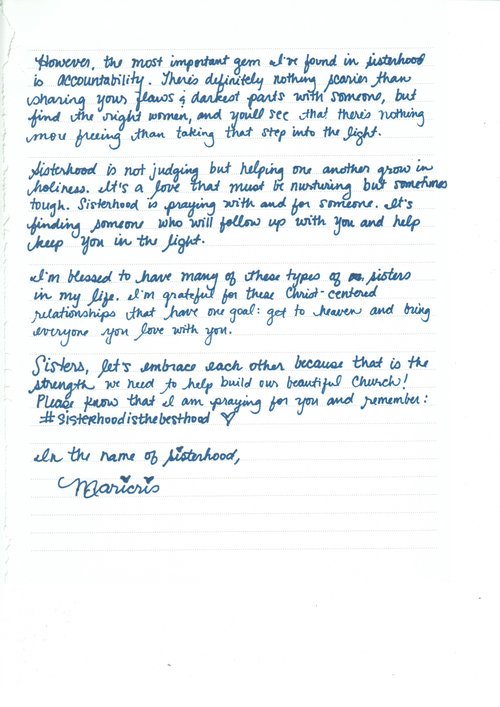 However, the most important gem I've found in sisterhood
is accountability. There's definitely nothing scarier than
sharing your flaws & darkest parts with someone, but
find the right women, and you'll see that there's nothing
more freeing than taking that step into the light.
Sisterhood is not judging but helping one another grow in
holiness. It's a love that must be nurturing but sometimes
tough. Sisterhood is praying with and for someone. It's
finding someone who will follow up with you and help
keep you in the light.
I'm blessed to have many of these types of sisters
in my life. I'm grateful for these Christ-centered
relationships that have one goal: get to heaven and bring
everyone you love with you.
Sisters, let's embrace each other because that is the
strength we need to help build our beautiful Church!
Please know that I am praying for you and remember:
#sisterhoodisthebesthood ♡
In the name of sisterhood,
Maricris